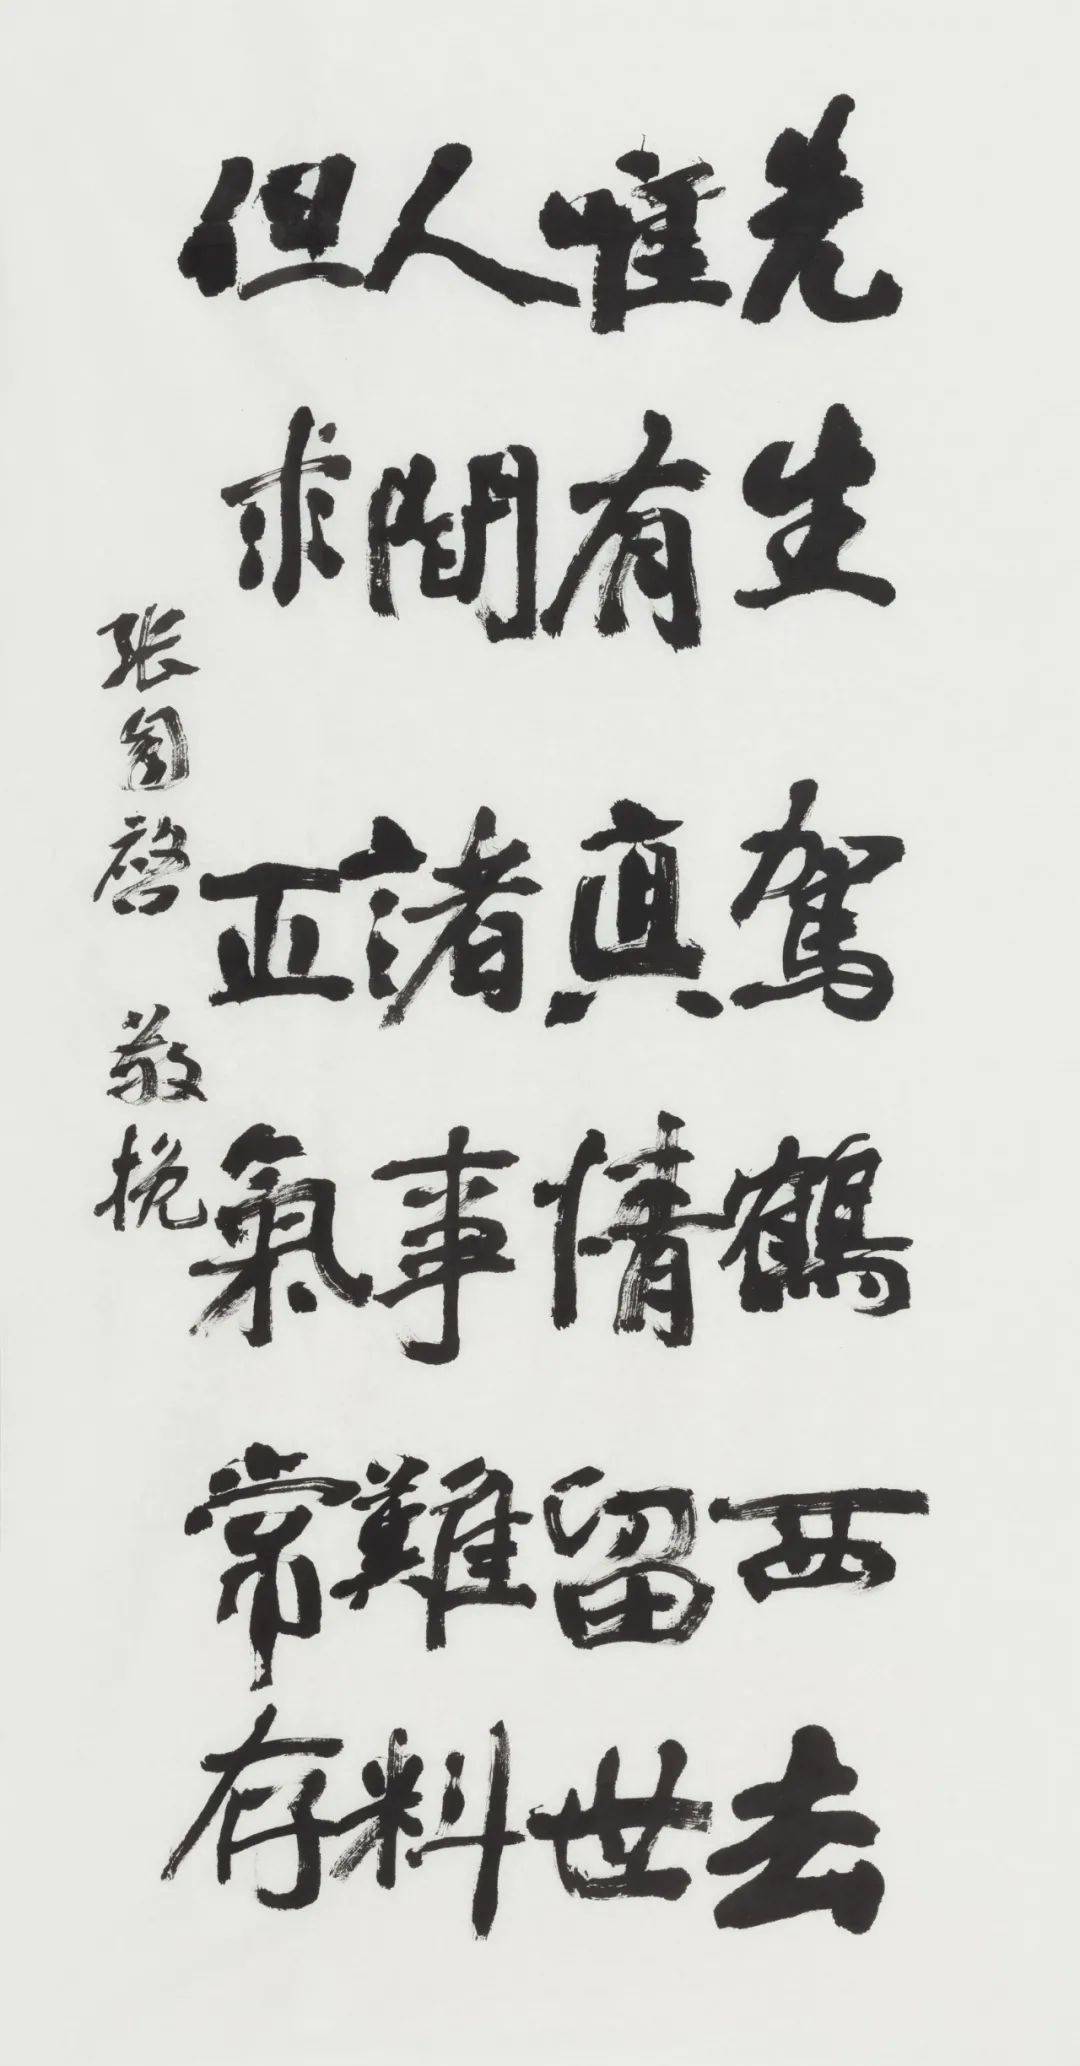 先生駕鶴西去
唯有真情留世
人間諸事難料
但求正氣常存
张啓 敬挽